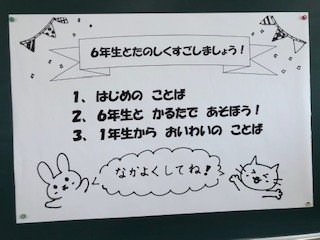 6年生とたのしくすごしましょう!
1、はじめの ことば
2、6年生と かるたで あそぼう!
3、1年生から おいわいの ことば
なかよくしてね!